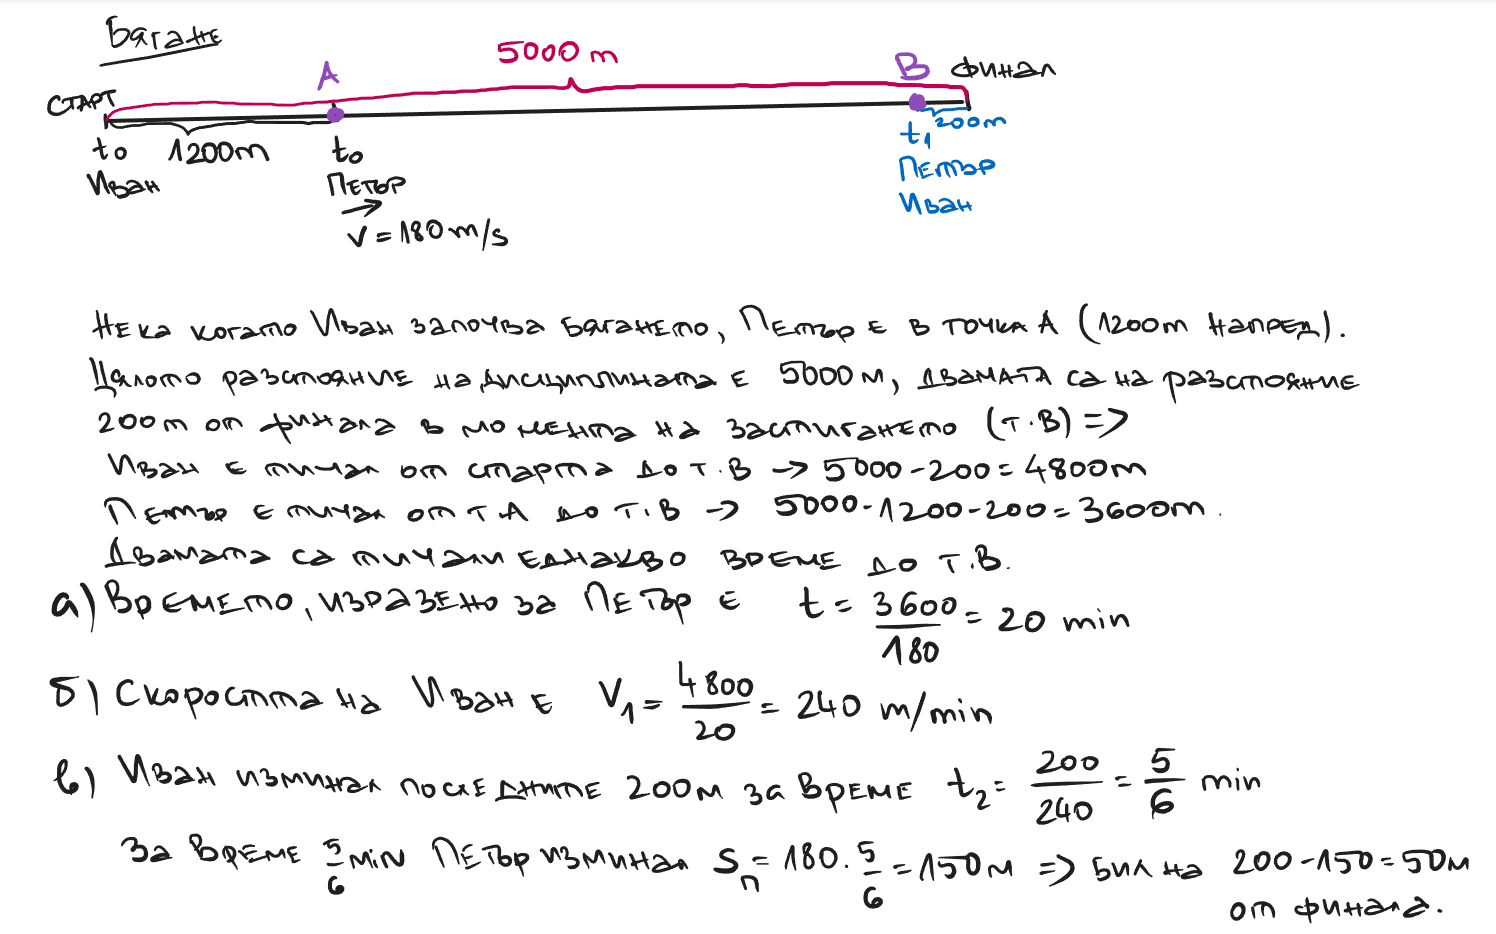 Бягане
5000 m
A
B финал
СТАРТ
1200m
200m
t₀
Иван
t₀
Петър
v = 180 m/s
t₁
Петър
Иван
Нека когато Иван започва бягането, Петър е в точка А (1200m напред).
Цялото разстояние на дисциплината е 5000м, двамата са на разстояние
200m от финала в момента на застигането (т.В) =>
Иван е тичал от старта до т.В -> 5000-200=4800m
Петър е тичал от т.А до т.В -> 5000-1200-200=3600m.
Двамата са тичали еднакво време до т.В.
а) Времето, изразено за Петър е t = 3600/180 = 20 min
б) Скоростта на Иван е V₁ = 4800/20 = 240 m/min
в) Иван изминал последните 200м за време t₂ = 200/240 = 5/6 min
За време 5/6 min Петър изминал Sп = 180 . 5/6 = 150м => бил на 200-150=50м
от финала.